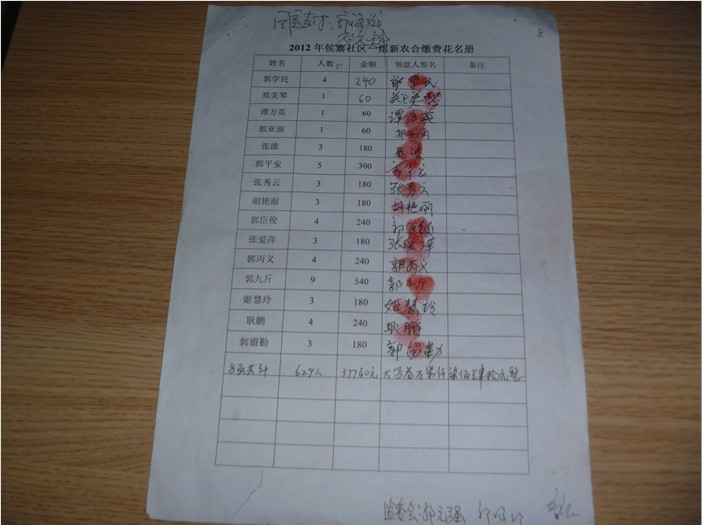 8
2012年侯寨社区 组新农合缴费花名册
姓名 人数 金额 领款人签名 备注
郭学民 4 240 郭学民
郑美琴 1 60 郑美琴
谭方英 1 60 谭方英
郭亚丽 1 60 郭亚丽
张波 3 180 张波
郭平安 5 300 郭平安
张秀云 3 180 张秀云
胡艳丽 3 180 胡艳丽
郭臣俊 4 240 郭臣俊
张爱萍 3 180 张爱萍
郭丙义 4 240 郭丙义
郭九斤 9 540 郭九斤
姬慧玲 3 180 姬慧玲
耿鹏 4 240 耿鹏
郭留勤 3 180 郭留勤
8张共计 629人 37740元 大写叁万柒仟柒佰肆拾元整
监委会:郭元强